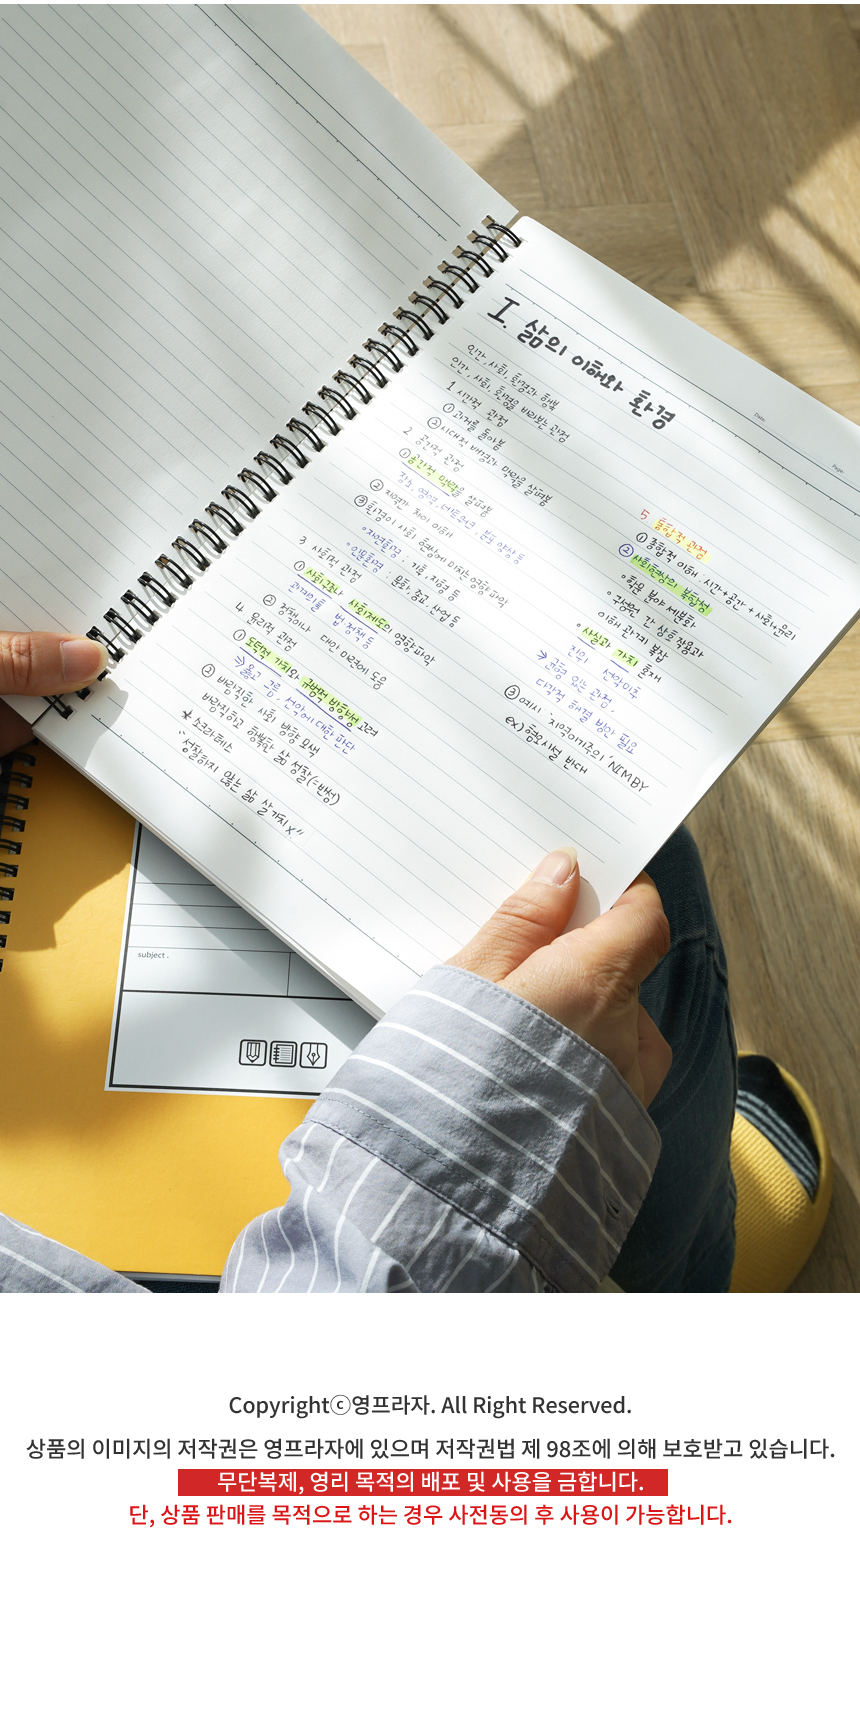 Date.
Page.
I. 삶의 이해와 환경
인간, 사회, 환경과 행복
인간, 사회, 환경을 바라보는 관점
1 시간적 관점
① 과거를 돌아봄
② 시대적 배경과 맥락을 살펴봄
2 공간적 관점
① 공간적 맥락을 살펴봄
장소, 영역, 네트워크, 분포 양상 등
② 지역간 차이 이해
③ 환경이 사회 현상에 미치는 영향 파악
• 자연환경 : 기후, 지형 등
• 인문환경 : 문화, 종교, 산업 등
3 사회적 관점
① 사회구조나 사회제도의 영향 파악
법 정책 등
② 정책이나 대안 마련에 도움
4 윤리적 관점
① 도덕적 가치와 규범적 방향성 고려
옳고 그름 선악에 대한 판단
② 바람직한 사회 방향 모색
바람직하고 행복한 삶 성찰(=반성)
* 소크라테스
"성찰하지 않는 삶 살 가치 X"
5 통합적 관점
① 종합적 이해 : 시간+공간+사회+윤리
② 사회현상의 복합성
• 학문 분야 세분화
• 구성원 간 상호작용과
이해 관계 복잡
• 사실과 가치 혼재
지위 선악미추
→ 균형 있는 관점.
다각적 해결 방안 필요
③ 예시 : 지역이기주의 'NIMBY
ex) 혐오시설 반대
subject .
Copyrightⓒ영프라자. All Right Reserved.
상품의 이미지의 저작권은 영프라자에 있으며 저작권법 제 98조에 의해 보호받고 있습니다.
무단복제, 영리 목적의 배포 및 사용을 금합니다.
단, 상품 판매를 목적으로 하는 경우 사전동의 후 사용이 가능합니다.